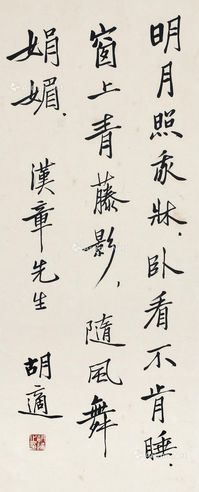 明月照我牀，臥看不肯睡．
窗上青藤影，隨風舞
娟媚．
漢章先生
胡適